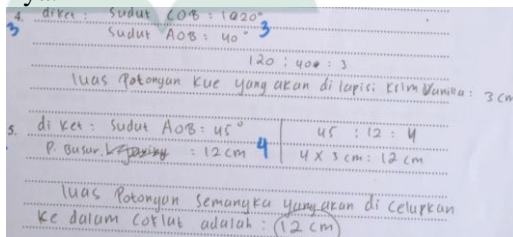 4. diket : Sudut COB : 1020°
3 Sudut AOB : 40° 3
120 : 40° : 3
luas Potongan kue yang akan di lapisi krim Vanilla : 3 cm
5. di ket : Sudut AOB : 45° 45 : 12 : 4
P. Busur : 12 cm 4 4 x 3 cm : 12 cm
luas Potongan Semangka yang akan di Celupkan
ke dalam Coklat adalah : 12 cm